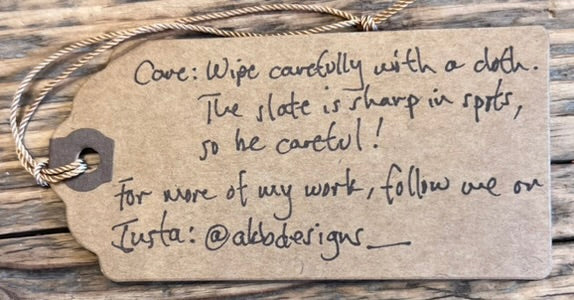 Care: Wipe carefully with a cloth.
The slate is sharp in spots,
so be careful!
For more of my work, follow me on
Insta: @akbdesigns__